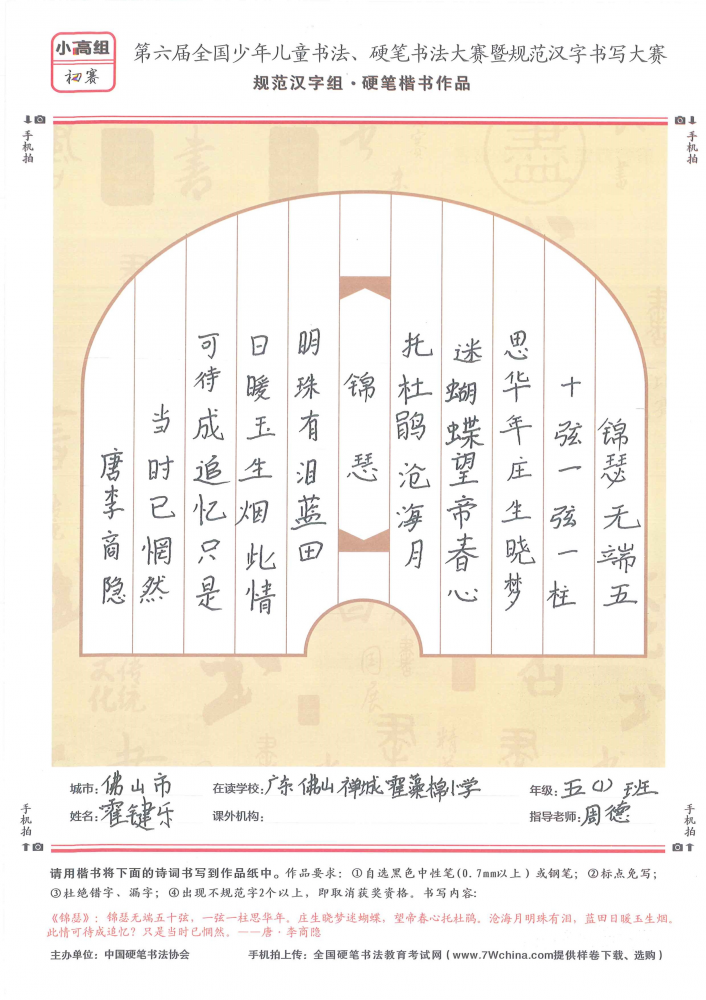 小高组
初赛
第六届全国少年儿童书法、硬笔书法大赛暨规范汉字书写大赛
规范汉字组·硬笔楷书作品
手机拍
手机拍
锦瑟无端五
十弦一弦一柱
思华年庄生晓梦
迷蝴蝶望帝春心
托杜鹃沧海月
锦瑟
明珠有泪蓝田
日暖玉生烟此情
可待成追忆只是
当时已惘然
唐李商隐
城市:佛山市
在读学校:广东佛山禅城霍藻棉小学
年级:五(1)班
姓名:霍键乐
课外机构:
指导老师:周德
手机拍
手机拍
请用楷书将下面的诗词书写到作品纸中。作品要求:①自选黑色中性笔(0.7mm以上)或钢笔;②标点免写;
③杜绝错字、漏字;④出现不规范字2个以上,即取消获奖资格。书写内容:
《锦瑟》:锦瑟无端五十弦,一弦一柱思华年。庄生晓梦迷蝴蝶,望帝春心托杜鹃。沧海月明珠有泪,蓝田日暖玉生烟。
此情可待成追忆?只是当时已惘然。——唐·李商隐
主办单位:中国硬笔书法协会
手机拍上传:全国硬笔书法教育考试网(www.7Wchina.com提供样卷下载、选购)